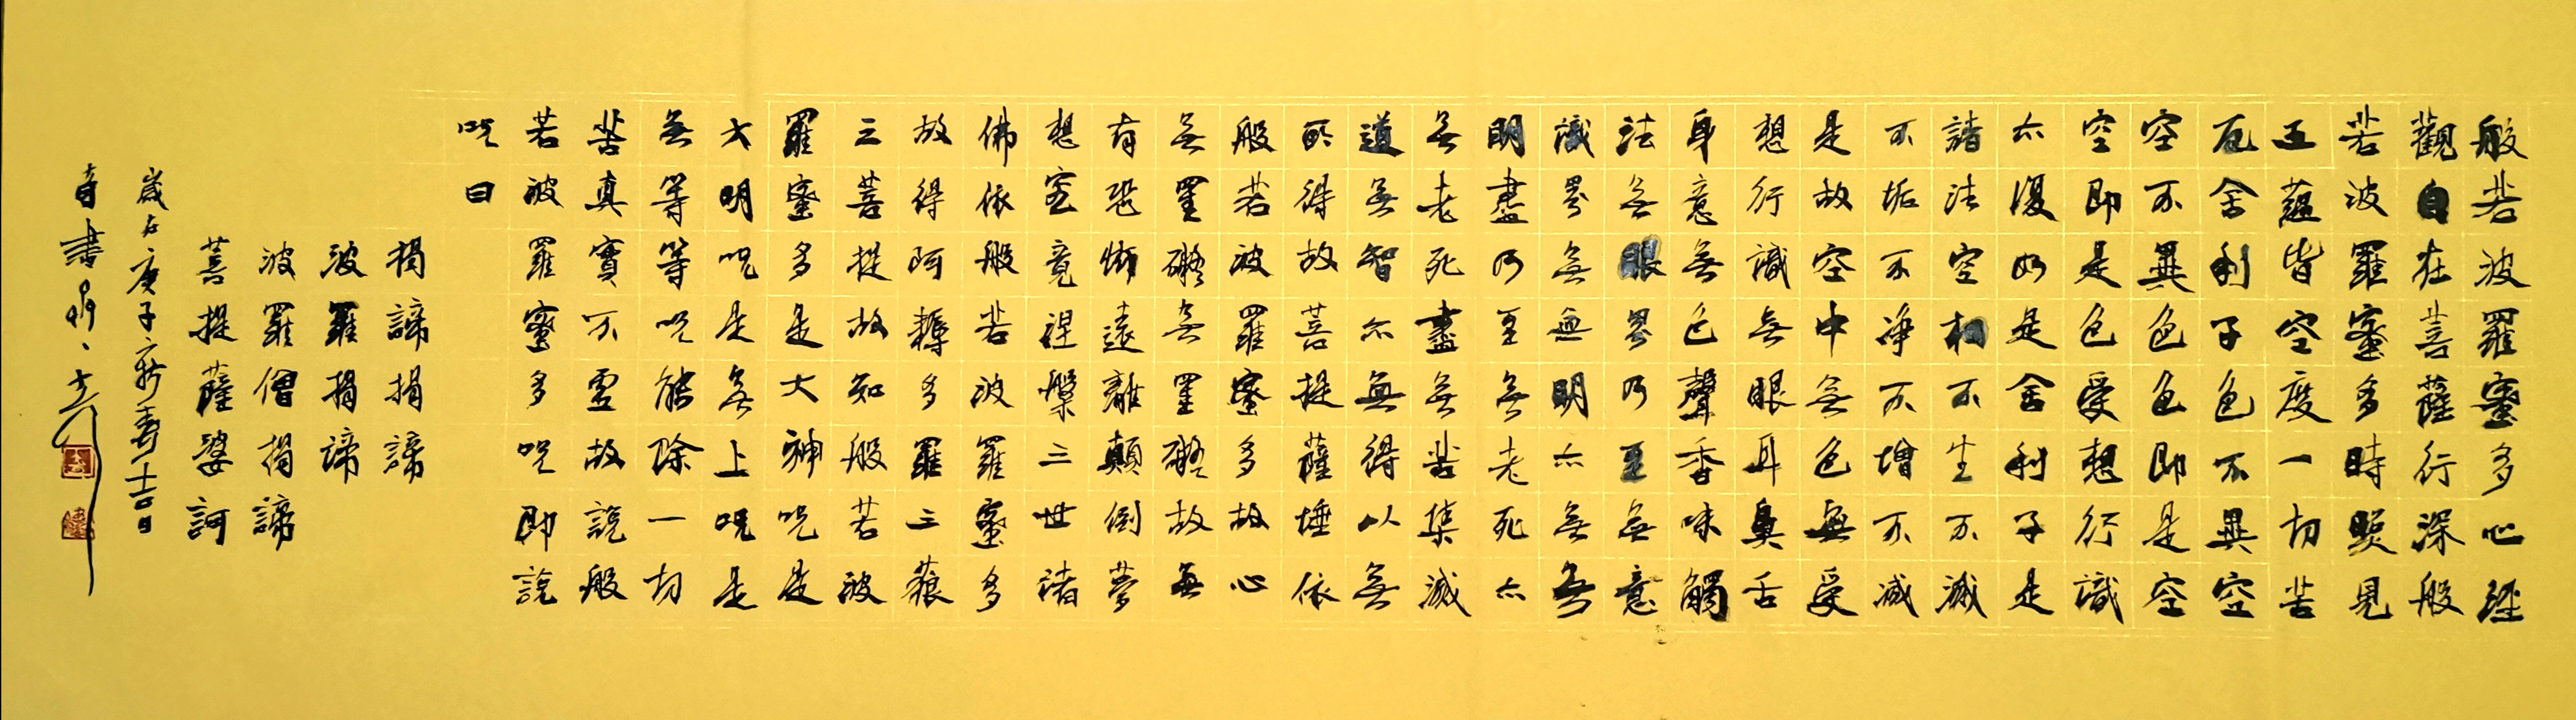 般若波羅蜜多心經
觀自在菩薩行深般
若波羅蜜多時照見
五蘊皆空度一切苦
厄舍利子色不異空
空不異色色即是空
空即是色受想行識
亦復如是舍利子是
諸法空相不生不滅
不垢不净不增不减
是故空中無色無受
想行識無眼耳鼻舌
身意無色聲香味觸
法無眼界乃至無意
識界無無明亦無無
明盡乃至無老死亦
無老死盡無苦集滅
道無智亦無得以無
所得故菩提薩埵依
般若波羅蜜多故心
無罣礙無罣礙故無
有恐怖遠離顛倒夢
想究竟涅槃三世諸
佛依般若波羅蜜多
故得阿耨多羅三藐
三菩提故知般若波
羅蜜多是大神咒是
大明咒是無上咒是
無等等咒能除一切
苦真實不虛故說般
若波羅蜜多咒即說
咒曰
揭諦揭諦
波羅揭諦
波羅僧揭諦
菩提薩婆訶
歲在庚子
書